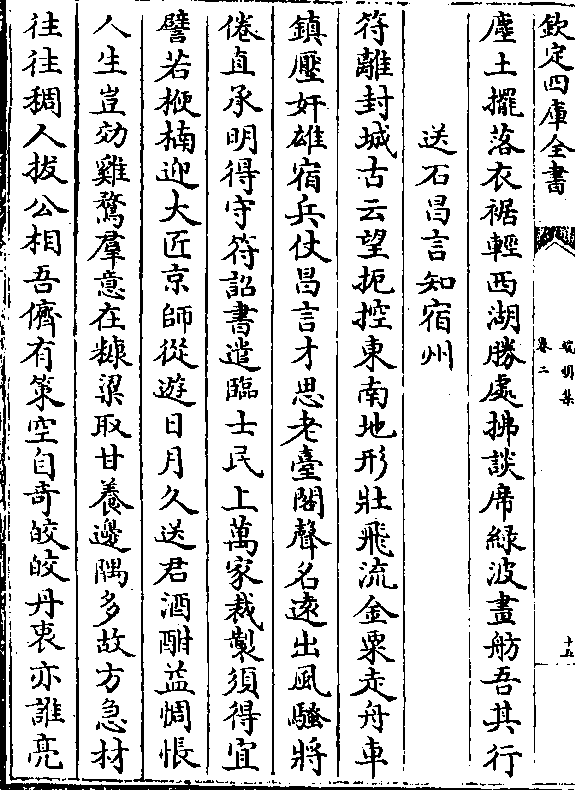 欽定四庫全書
筑明集
卷二
十五
塵土擺落衣裾輕西湖勝處拂談席綠波畫舫吾其行
送石昌言知宿州
符離封城古云望扼控東南地形壯飛流金粟走舟車
鎮壓奸雄宿兵仗昌言才思老臺閣聲名遠出風騷將
倦直承明得守符詔書遣臨士民上萬家裁製須得宜
譬若楩楠迎大匠京師從遊日月久送君酒酣益惆悵
人生豈効雞鶩羣意在糠粱取甘養邊隅多故方急材
往往稠人拔公相吾儕有策空自竒皎皎丹衷亦誰亮